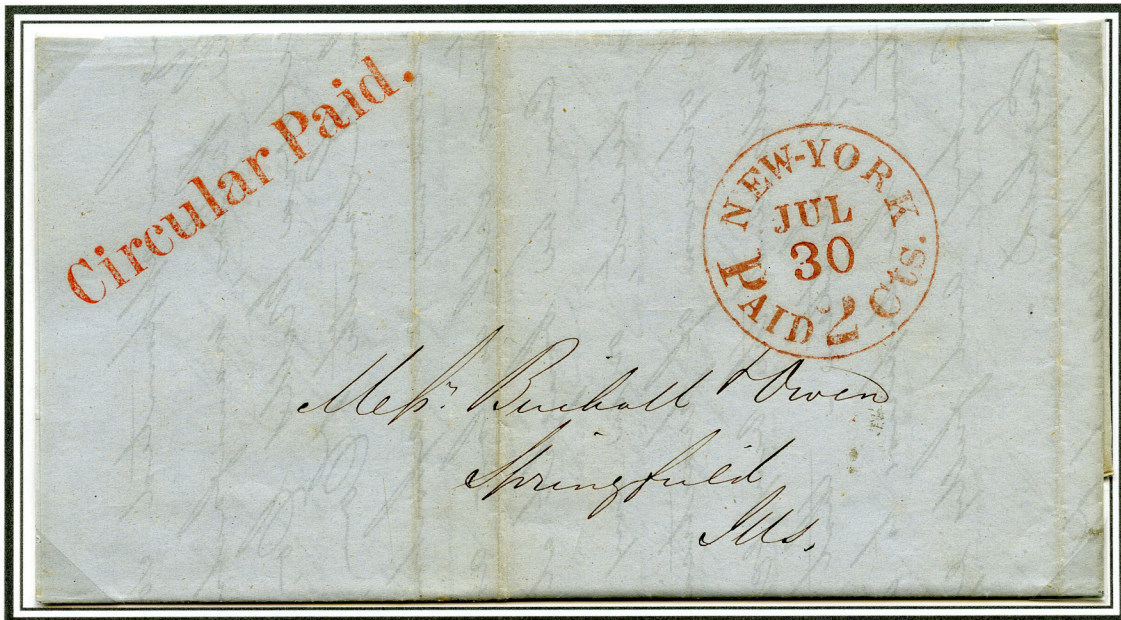 Circular Paid.
NEW-YORK
JUL
30
PAID 2 Cts.
Messrs. Birchall & Owen
Springfield
Ills.